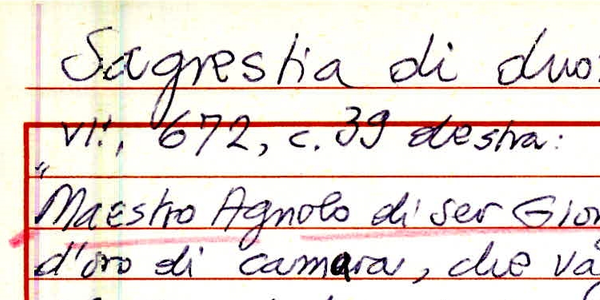 Sagrestia di duo
vi!, 672, c. 39 destra:
"Maestro Agnolo di ser Gio
d'oro di camera, che va